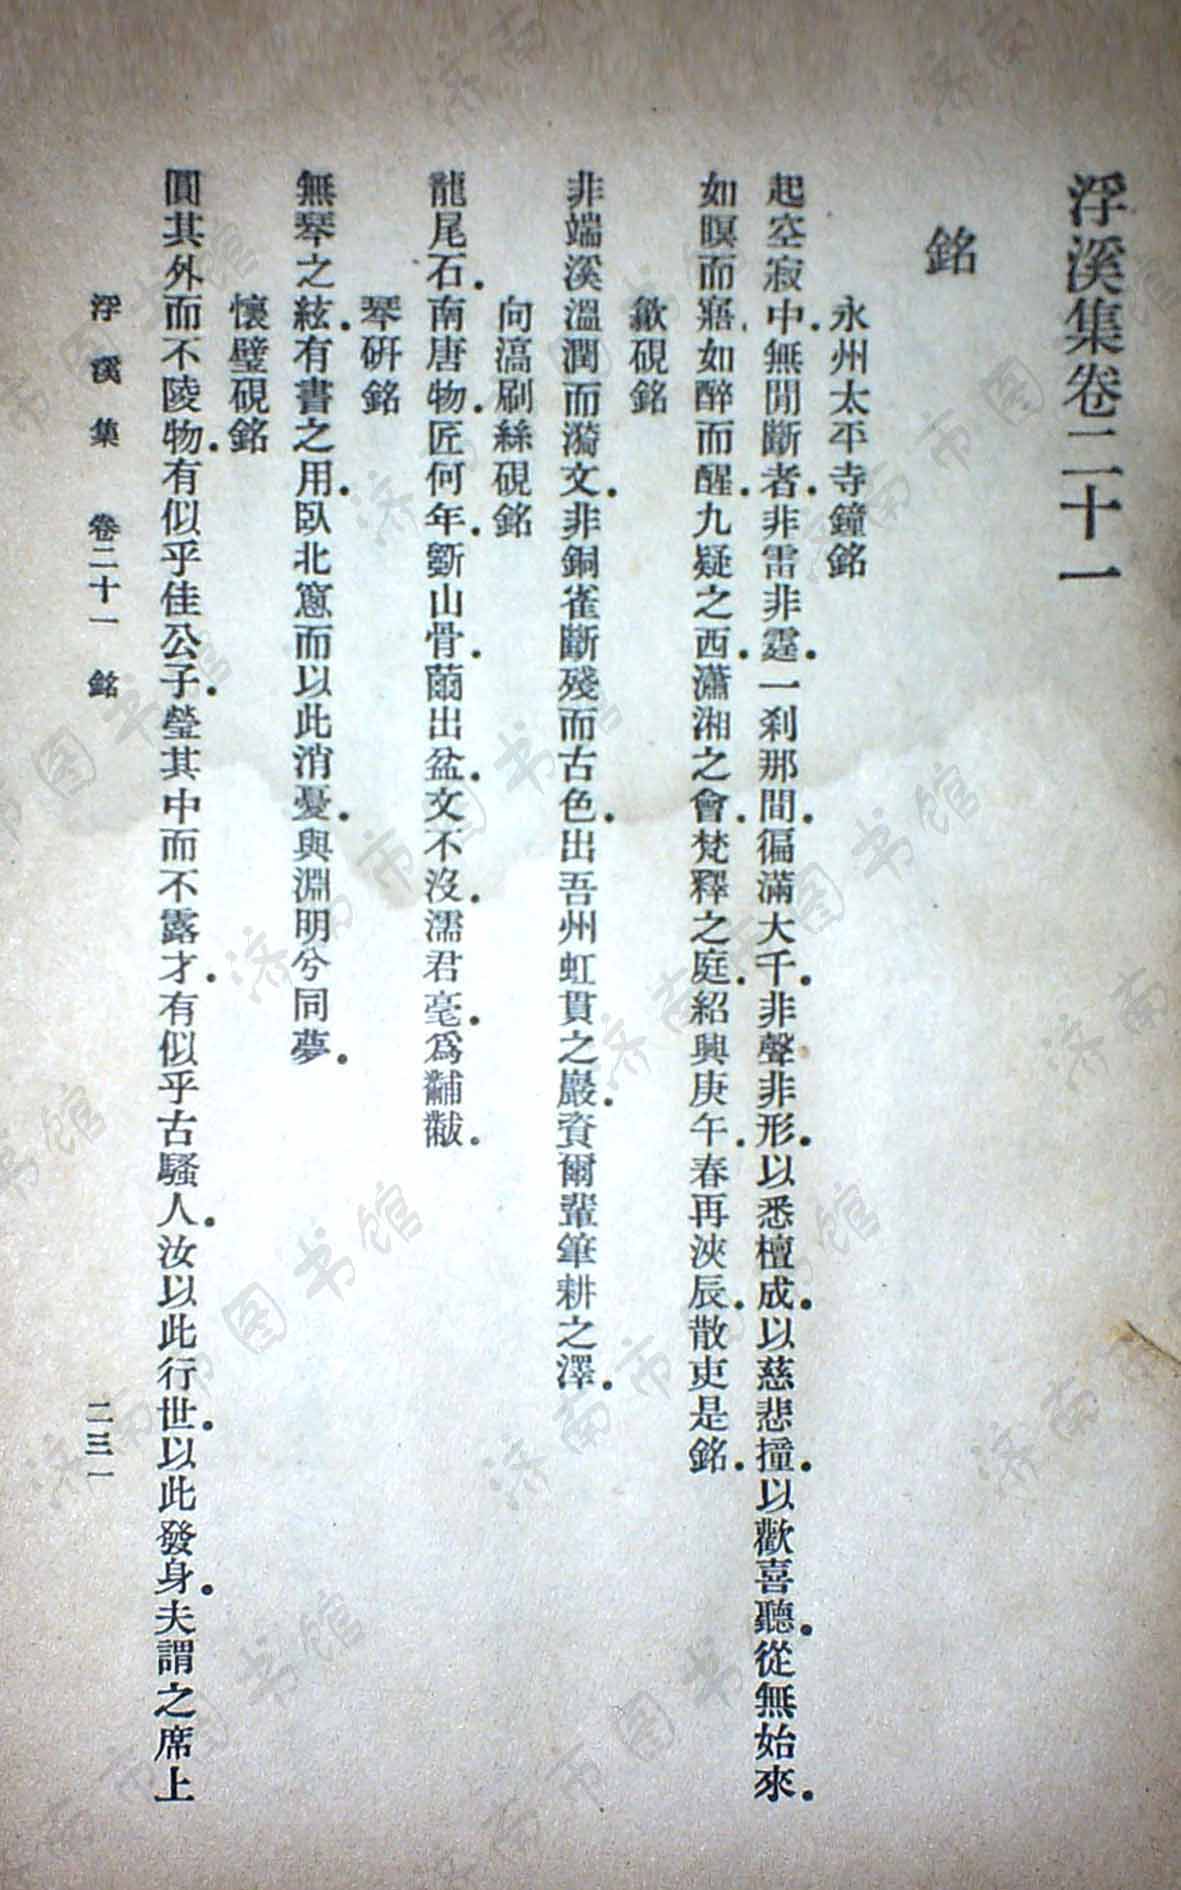 浮溪集卷二十一
銘
永州太平寺鐘銘
起空寂中.無間斷者.非雷非霆.一刹那間.徧滿大千.非聲非形.以悉檀成.以慈悲撞.以歡喜聽.從無始來.
如暝而寤.如醉而醒.九疑之西.瀟湘之會.梵釋之庭.紹興庚午.春再浹辰.散吏是銘.
歙硯銘
非端溪溫潤而漪文.非銅雀斷殘而古色.出吾州虹貫之巖.資爾輩筆耕之澤.
向滈刷絲硯銘
龍尾石.南唐物.匠何年.斲山骨.繭出盆.文不沒.濡君毫.爲黼黻.
琴硏銘
無琴之絃.有書之用.臥北窻而以此消憂.與淵明兮同夢.
懷璧硯銘
圓其外而不陵物.有似乎佳公子.瑩其中而不露才.有似乎古騷人.汝以此行世.以此發身.夫謂之席上
浮溪集 卷二十一 銘 二三一
济南市图书馆